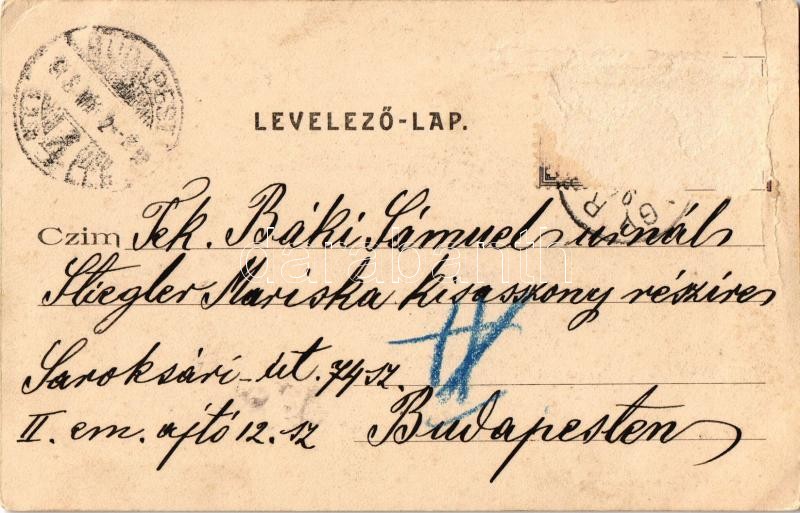 BUDAPEST
LEVELEZŐ-LAP.
Czim Tek. Báki Sámuel urnál
Stiegler Mariska kisasszony részére
Saroksári-ut. 74 sz.
II. em. ajtó 12. sz Budapesten
darabanth